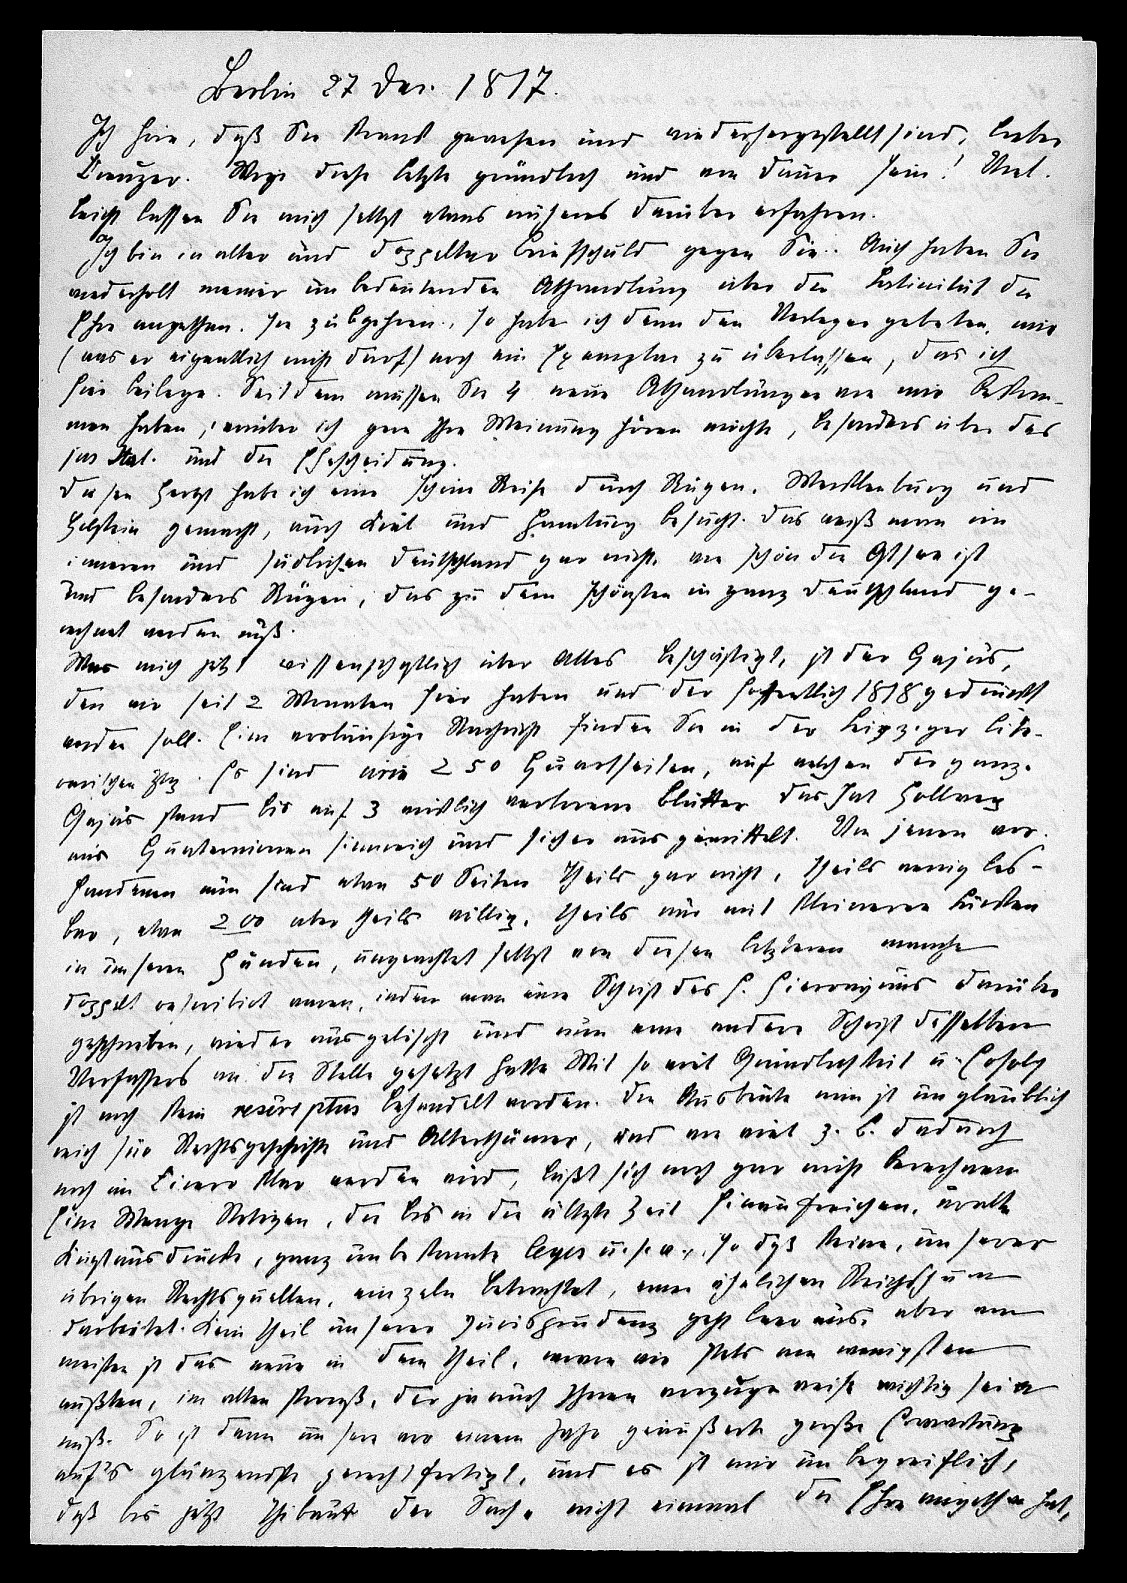 Berlin 27 Dec. 1817.
Ich höre, daß Sie krank gewesen und wiederhergestellt sind, lieber
Creuzer. Möge dieß letzte gründlich und von Dauer sein! Viel-
leicht lassen Sie mich selbst etwas näheres darüber erfahren.
Ich bin in alter und doppelter Briefschuld gegen Sie. Auch haben Sie
wiederholt meiner unbedeutenden Abhandlung über die Latinität die
Ehre angethan, sie zu begehren, so habe ich denn den Verleger gebeten, mir
(was er eigentlich nicht darf) noch ein Exemplar zu überlassen, das ich
hier beilege. Seitdem müssen Sie 4 neue Abhandlungen von mir bekom-
men haben, worüber ich gern Ihre Meinung hören möchte, besonders über das
jus Ital. und die Ehescheidung.
Diesen Herbst habe ich eine schöne Reise durch Rügen, Mecklenburg und
Holstein gemacht, auch Kiel und Hamburg besucht. Das weiß man im
inneren und südlichen Deutschland gar nicht, wie schön die Ostsee ist
und besonders Rügen, das zu dem schönsten in ganz Deutschland ge-
rechnet werden muß.
Was mich jetzt wissenschaftlich über Alles beschäftigt, ist der Gajus,
den wir seit 2 Monaten hier haben und der hoffentlich 1818 gedruckt
werden soll. Eine vorläufige Nachricht finden Sie in der Leipziger Lite-
rarischen Ztg. Es sind circa 250 Quartseiten, auf welchen der ganze
Gajus stand bis auf 3 wirklich verlorene Blätter das hat Hollweg
aus Quaternionen sinnreich und sicher ausgemittelt. Von jenen vor-
handenen nun sind etwa 50 Seiten theils gar nicht, theils wenig les-
bar, etwa 200 aber theils völlig, theils nur mit kleineren Lücken
in unseren Händen, ungeachtet selbst von diesen letzteren manche
doppelt rescribirt waren, indem man eine Schrift des h. Hieronymus darüber
geschrieben, wieder ausgelöscht und nun eine andere Schrift desselben
Verfassers an die Stelle gesetzt hatte. Mit so viel Gründlichkeit u. Erfolg
ist noch kein rescriptus behandelt worden. Die Ausbeute nun ist unglaublich
reich für Rechtsgeschichte und Alterthümer, und wie viel z. B. dadurch
noch im Cicero klar werden wird, läßt sich noch gar nicht berechnen.
Eine Menge Notizen, die bis in die älteste Zeit hinaufreichen, uralte
Kunstausdrücke, ganz unbekannte leges u.s.w., so daß keine, unserer
übrigen Rechtsquellen, einzeln betrachtet, einen ähnlichen Reichthum
darbietet. Kein Theil unserer Jurisprudenz geht leer aus, aber am
meisten ist das neue in dem Theil, wovon wir stets am wenigsten
wußten, im alten Proceß, der ja auch Ihnen vorzugsweise wichtig sein
muß. So ist denn unsere vor einem Jahr geäußerte große Erwartung
auf's glänzendste gerechtfertigt, und es ist mir unbegreiflich,
daß bis jetzt Thibaut der Sache nicht einmal die Ehre angethan hat,